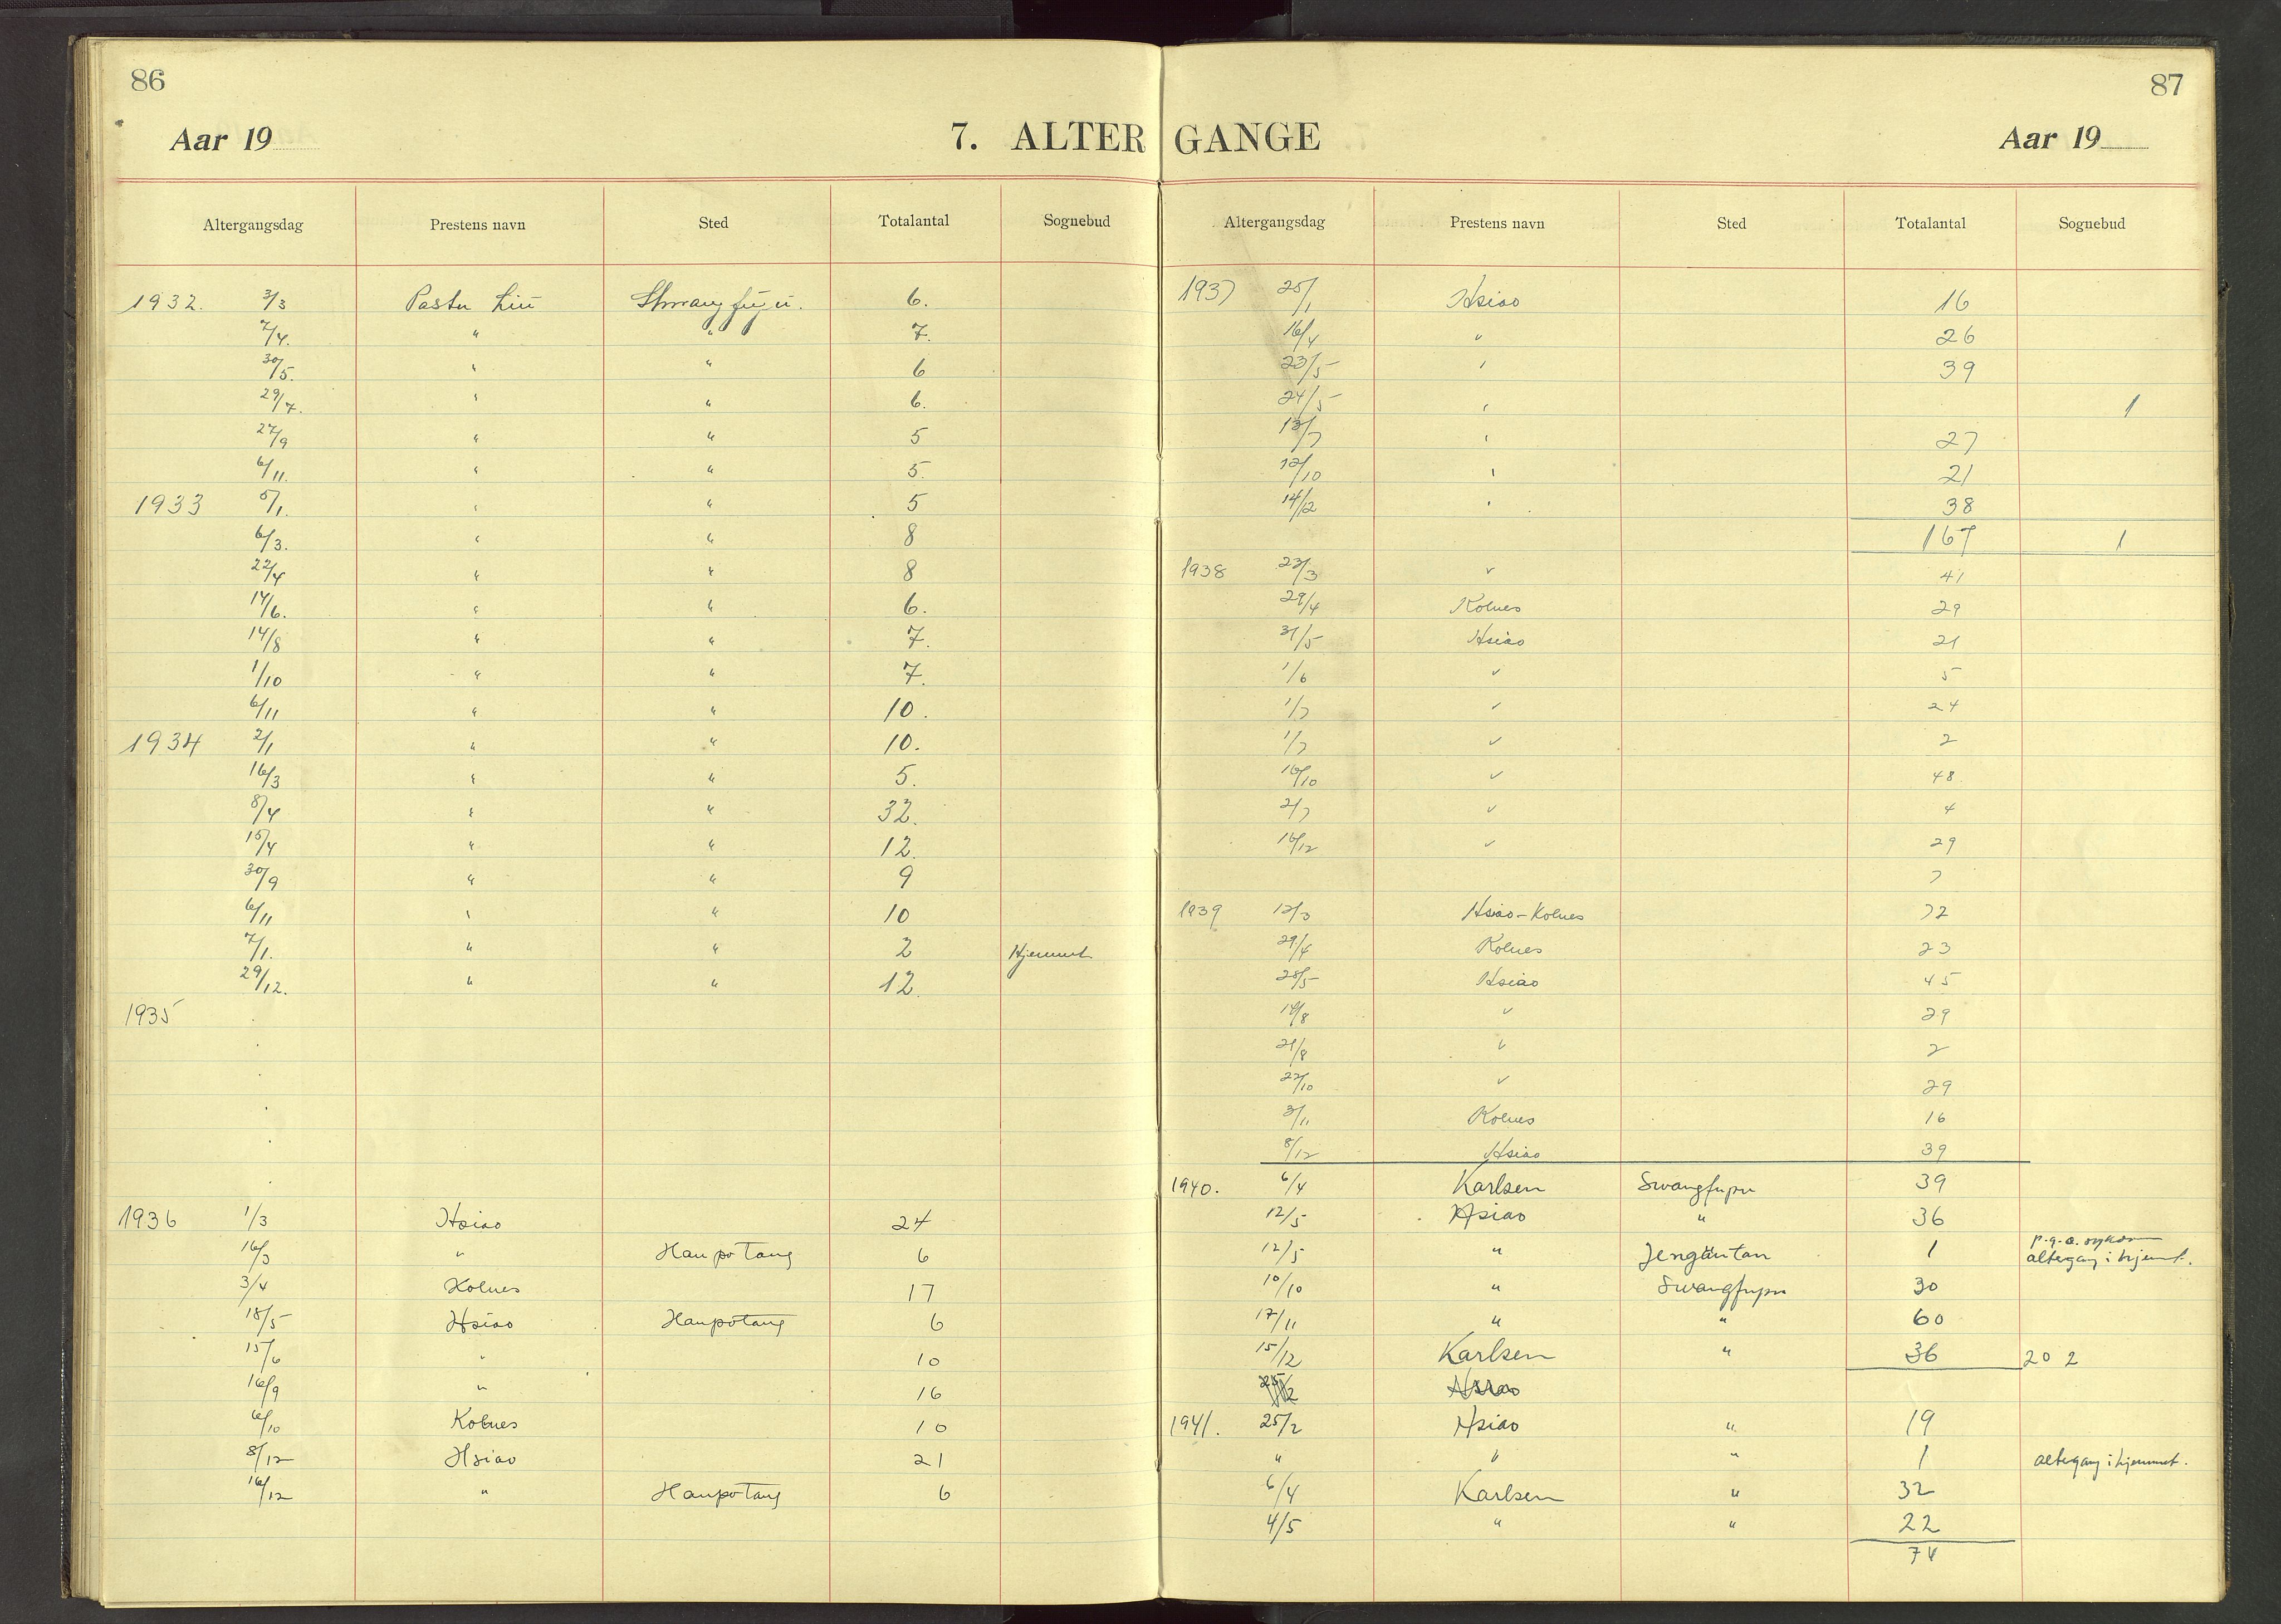 86
Aar 19
7. ALTER
Altergangsdag Prestens navn Sted Totalantal Sognebud
1932. 3/3 Pastor Liu 6.
7/4. " " 7.
30/5. " " 6
29/7. " " 6.
27/9 " " 5
6/11. " " 5.
1933 5/1. " " 5
6/3. " " 8
22/4 " " 8
14/6. " " 6.
14/8 " " 7.
1/10 " " 7.
6/11 " " 10.
1934 2/1 " " 10.
16/3 " " 5.
8/4 " " 32.
15/4 " " 12.
30/9 " " 9
6/11 " " 10
7/1. " " 2 Hjemmet
29/12. " " 12.
1935
1936 1/3 Hsiao 24
16/3 " Hanpotang 6
3/4 Kolnes 17
18/5 Hsiao Hanpotang 6
15/6 " 10
16/9 " 16
6/10 Kolnes 10
8/12 Hsiao 21
16/12 " Hanpotang 6
87
GANGE
Aar 19
Altergangsdag Prestens navn Sted Totalantal Sognebud
1937 25/1 Hsiao 16
16/4 " 26
23/5 " 39
24/5 " 1
13/7 " 27
12/10 " 21
14/12 " 38
167 1
1938 23/3 " 41
29/4 Kolnes 29
31/5 Hsiao 21
1/6 " 5
1/7 " 24
1/7 " 2
16/10 " 48
2/7 " 4
16/12 " 29
7
1939 12/3 Hsiao-Kolnes 72
29/4 Kolnes 23
28/5 Hsiao 45
14/8 " 29
21/8 " 2
22/10 " 29
3/11 Kolnes 16
8/12 Hsiao 39
1940. 6/4 Karlsen Swangfupu 39
12/5 Hsiao " 36
12/5 " Jengäntan 1 p.g.a. sykdom
altergang i hjemmet.
10/10 " Swangfupu 30
17/11 " " 60
15/12 Karlsen " 36 202
Hsiao
1941. 25/2 Hsiao " 19
" " " 1 altergang i hjemmet.
6/4 Karlsen " 32
4/5 " " 22
74